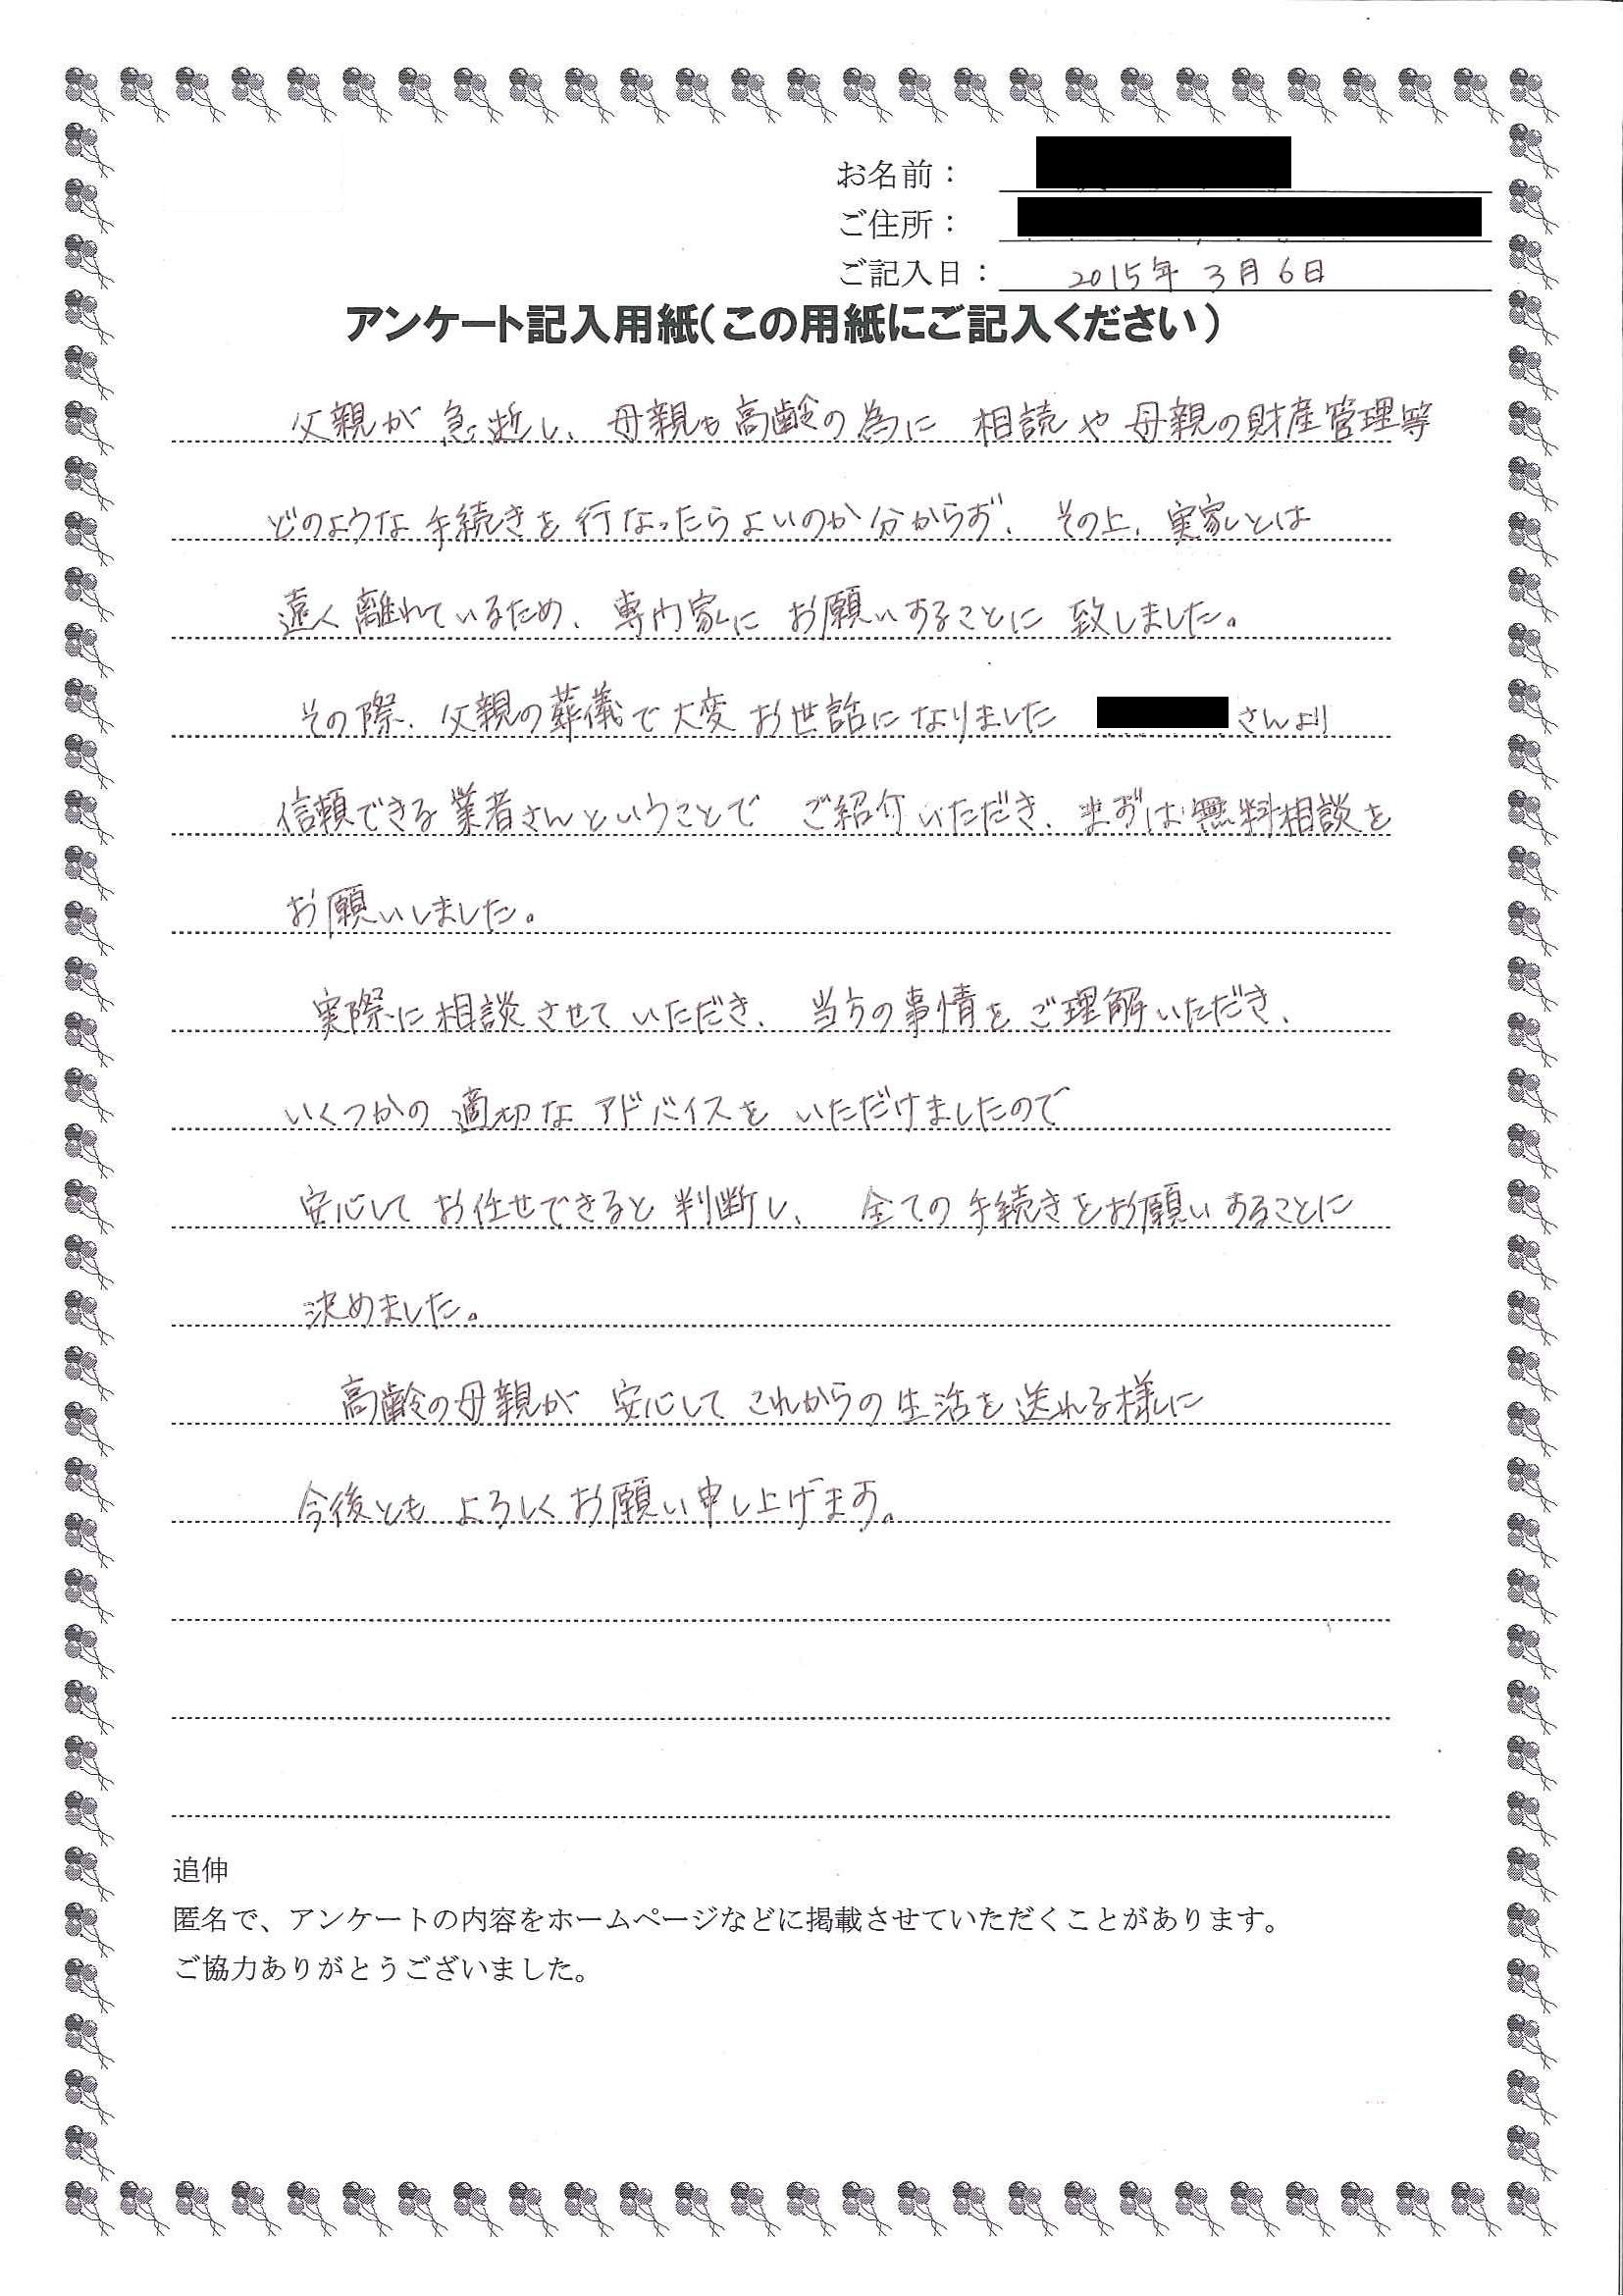 お名前：
ご住所：
ご記入日： 2015年 3月 6日
アンケート記入用紙（この用紙にご記入ください）
父親が 急逝し、母親も高齢の為に 相読や母親の財産管理等
どのような手続きを行なったらよいのか分からず、その上、実家とは
遠く離れているため、専門家に お願いすることに 致しました。
その際、父親の葬儀で大変お世話になりました さんより
信頼できる業者さんということで ご紹介いただき、まずは無料相談を
お願いしました。
実際に相談させていただき、当方の事情をご理解いただき、
いくつかの適切なアドバイスを いただけましたので
安心してお任せできると判断し、全ての手続きをお願いすることに
決めました。
高齢の母親が 安心して これからの生活を送れる様に
今後とも よろしくお願い申し上げます。
追伸
匿名で、アンケートの内容をホームページなどに掲載させていただくことがあります。
ご協力ありがとうございました。